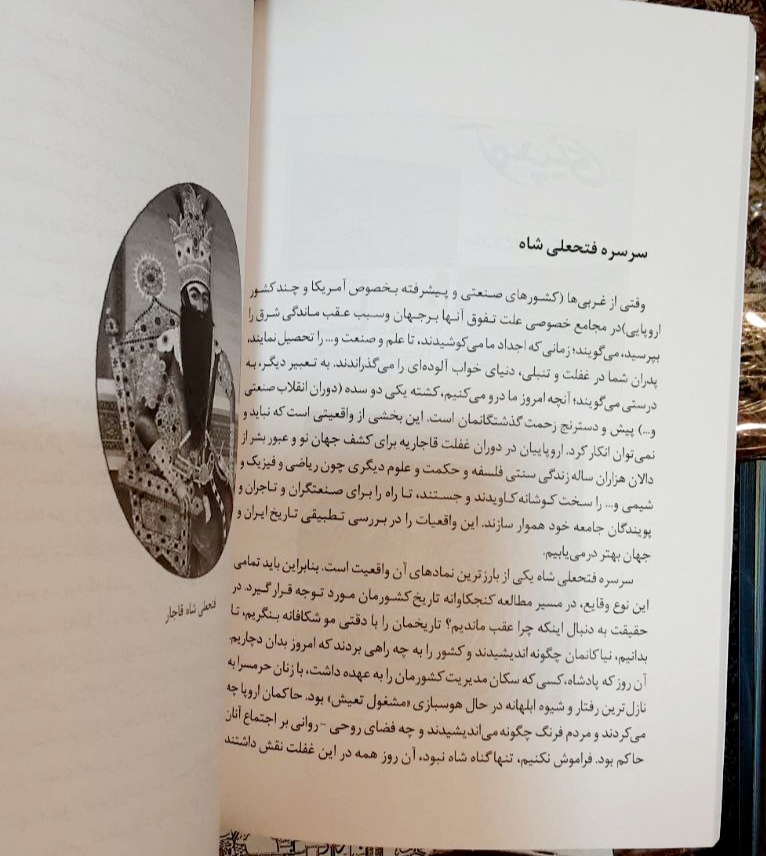 سرسره فتحعلی شاه
وقتی از غربی‌ها (کشورهای صنعتی و پیشرفته بخصوص آمریکا و چند کشور
اروپایی)در مجامع خصوصی علت تفوق آنها برجهان وسبب عقب ماندگی شرق را
بپرسید، می‌گویند؛ زمانی که اجداد ما می‌کوشیدند، تا علم و صنعت و... را تحصیل نمایند،
پدران شما در غفلت و تنبلی، دنیای خواب آلوده‌ای را می‌گذراندند. به تعبیر دیگر، به
درستی می‌گویند؛ آنچه امروز ما درو می‌کنیم، کشته یکی دو سده (دوران انقلاب صنعتی
و...) پیش و دسترنج زحمت گذشتگانمان است. این بخشی از واقعیتی است که نباید و
نمی‌توان انکار کرد. اروپاییان در دوران غفلت قاجاریه برای کشف جهان نو و عبور بشر از
دالان هزاران ساله زندگی سنتی فلسفه و حکمت و علوم دیگری چون ریاضی و فیزیک و
شیمی و... را سخت کوشانه کاویدند و جستند، تا راه را برای صنعتگران و تاجران و
پویندگان جامعه خود هموار سازند. این واقعیات را در بررسی تطبیقی تاریخ ایران و
جهان بهتر درمی‌یابیم.
سرسره فتحعلی شاه یکی از بارزترین نمادهای آن واقعیت است. بنابراین باید تمامی
این نوع وقایع، در مسیر مطالعه کنجکاوانه تاریخ کشورمان مورد توجه قرار گیرد. در
حقیقت به دنبال اینکه چرا عقب ماندیم؟ تاریخمان را با دقتی مو شکافانه بنگریم، تا
بدانیم، نیاکانمان چگونه اندیشیدند و کشور را به چه راهی بردند که امروز بدان دچاریم.
آن روز که پادشاه،کسی که سکان مدیریت کشورمان را به عهده داشت، با زنان حرمسرا به
نازل‌ترین رفتار و شیوه ابلهانه در حال هوسبازی «مشغول تعیش» بود. حاکمان اروپا چه
می‌کردند و مردم فرنگ چگونه می‌اندیشیدند و چه فضای روحی -روانی بر اجتماع آنان
حاکم بود. فراموش نکنیم، تنها گناه شاه نبود، آن روز همه در این غفلت نقش داشتند
فتحعلی شاه قاجار